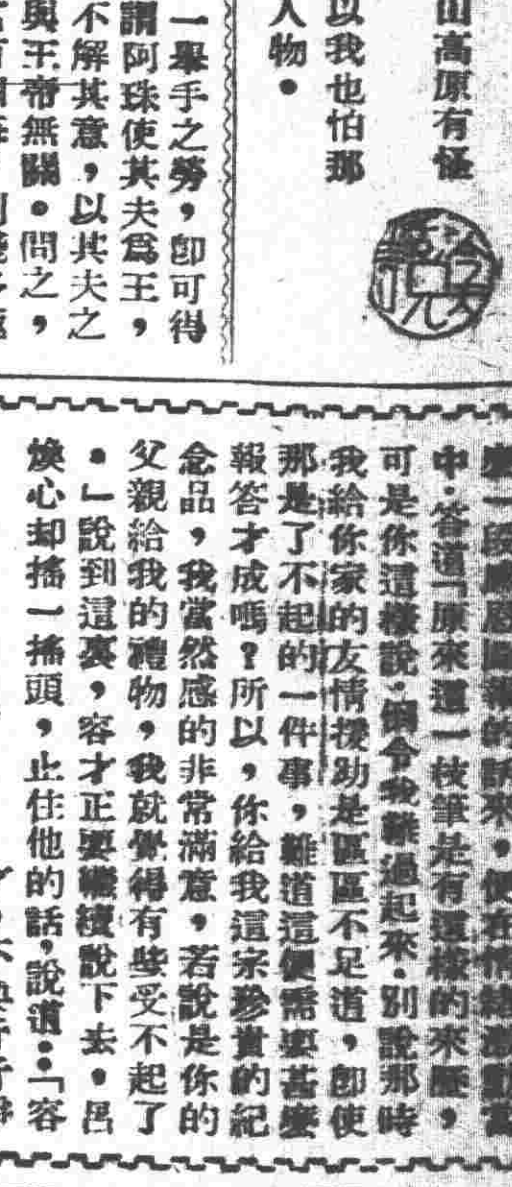 山高原有怪
以我也怕那
人物•
一舉手之勞，卽可得
謂阿珠使其夫爲王，
不解其意，以其夫之
與王帝無關•問之，
一段
中•答道「原來這一枝筆是有這樣的來歷，
可是你這樣說•倒令我難過起來•別說那時
我給你家的友情援助是區區不足道，卽使
那是了不起的一件事，難道這便需要甚麼
報答才成嗎？所以，你給我這宗珍貴的紀
念品，我當然感的非常滿意，若說是你的
父親給我的禮物，我就覺得有些受不起了
•」說到這裏，容才正要繼續說下去•呂
煥心却搖一搖頭，止住他的話，說道：「容